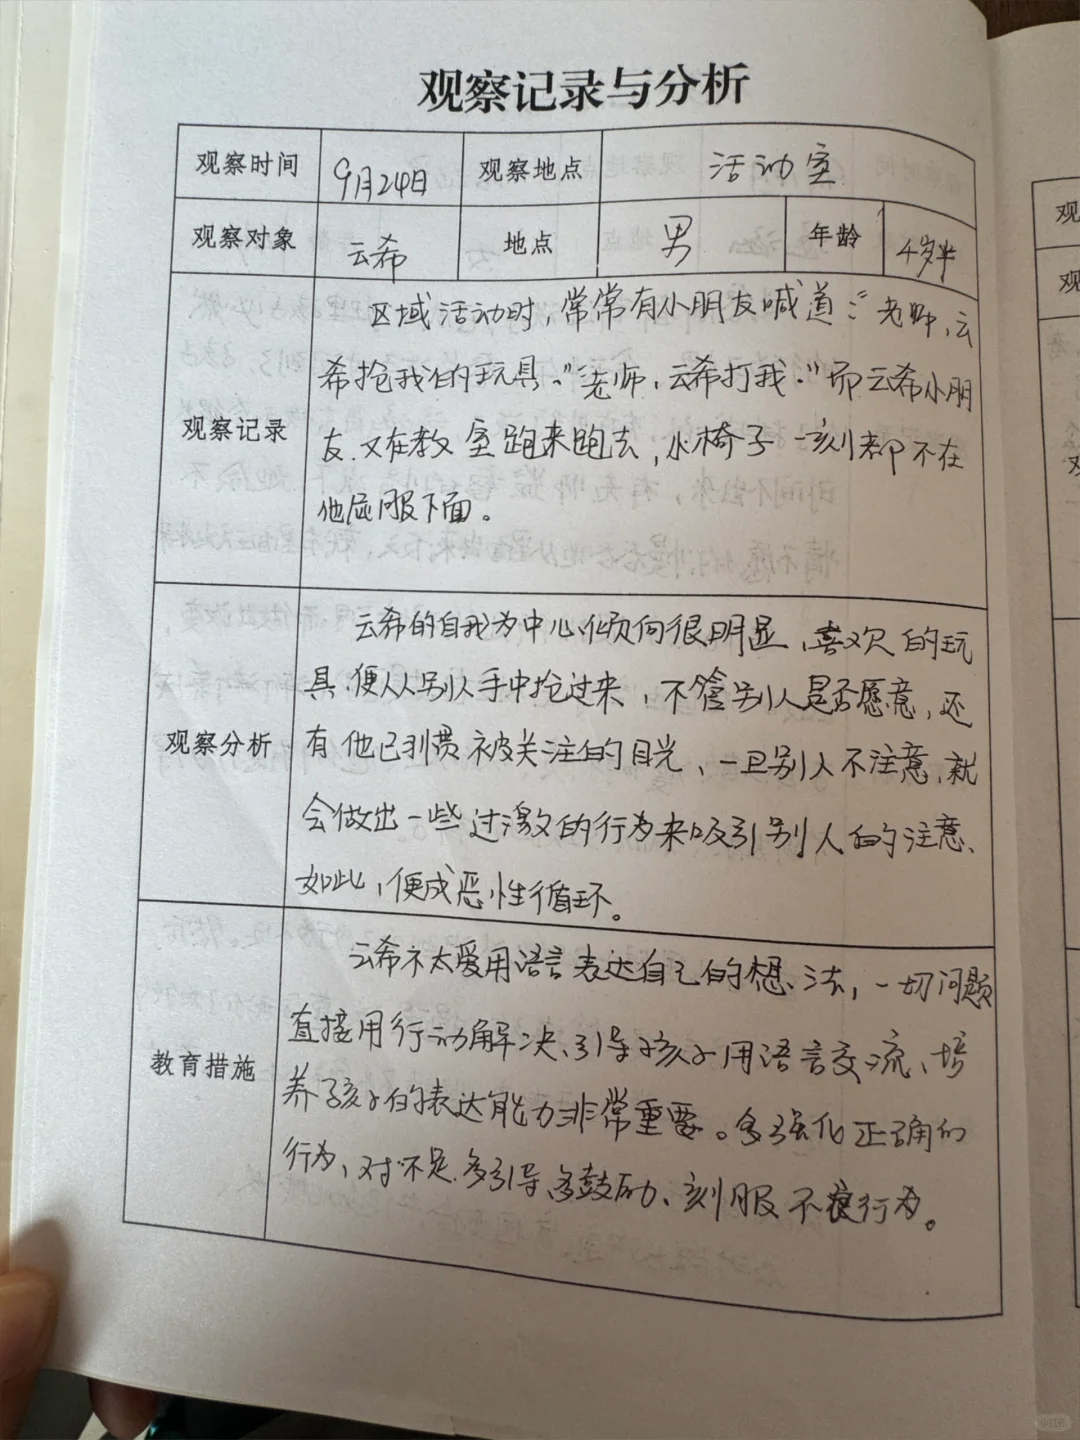 观察记录与分析
观察时间 9月24日 观察地点 活动室
观察对象 云希 地点 男 年龄 4岁半
观察记录
区域活动时,常常有小朋友喊道:“老师,云
希抢我的玩具。”“老师,云希打我。”而云希小朋
友又在教室跑来跑去,小椅子一刻都不在
他屁股下面。
观察分析
云希的自我为中心倾向很明显、喜欢的玩
具、便从别人手中抢过来,不管别人是否愿意,还
有他已习惯被关注的目光、一旦别人不注意,就
会做出一些过激的行为来吸引别人的注意、
如此,便成恶性循环。
教育措施
云希不太爱用语言表达自己的想法,一切问题
直接用行动解决、引导孩子用语言交流、培
养孩子的表达能力非常重要。多强化正确的
行为、对不足多引导、多鼓励、刻服不良行为。
观
观